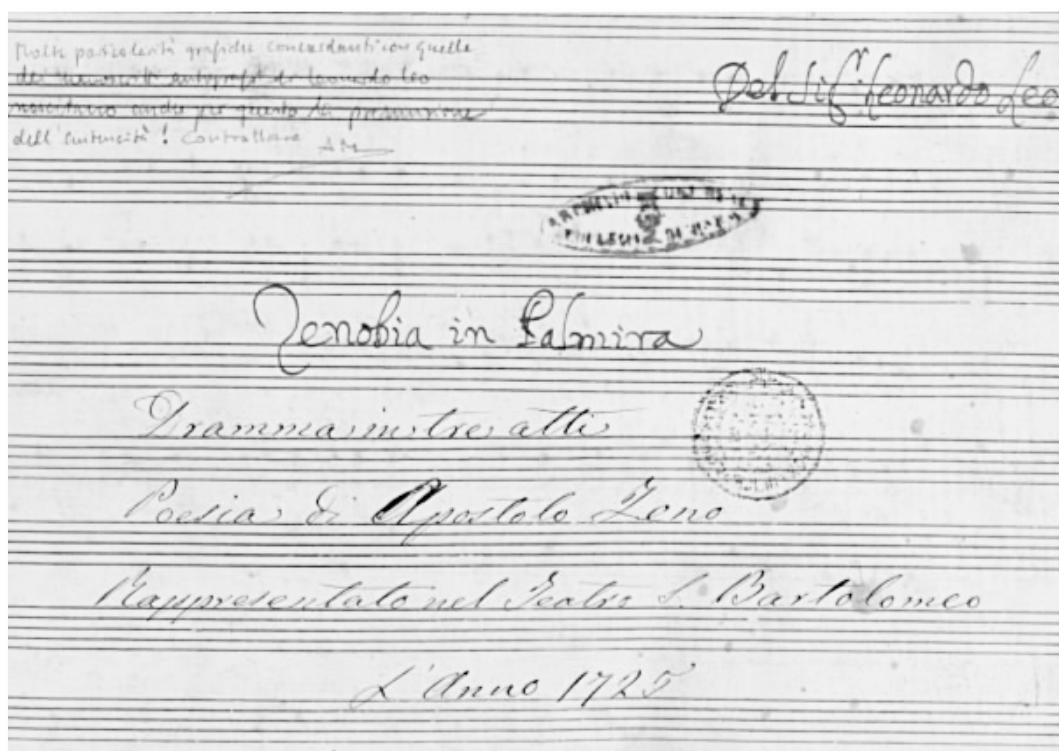 Molte particolarità grafiche concordanti con quelle
dei manoscritti autografi di Leonardo Leo
anche per questo la presunzione
dell'autenticità! Controllare
AM
Del Sig.r Leonardo Leo
Zenobia in Palmira
Dramma in tre atti
Poesia di Apostolo Zeno
Rappresentato nel Teatro S. Bartolomeo
L'Anno 1725